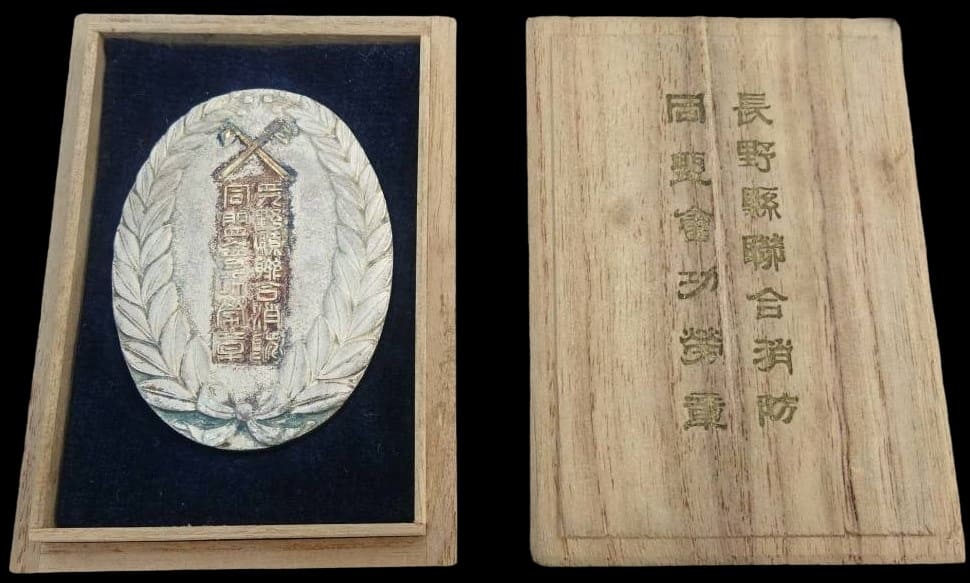 長野縣聯合消防
同盟會功勞章
長野縣聯合消防
同盟會功勞章